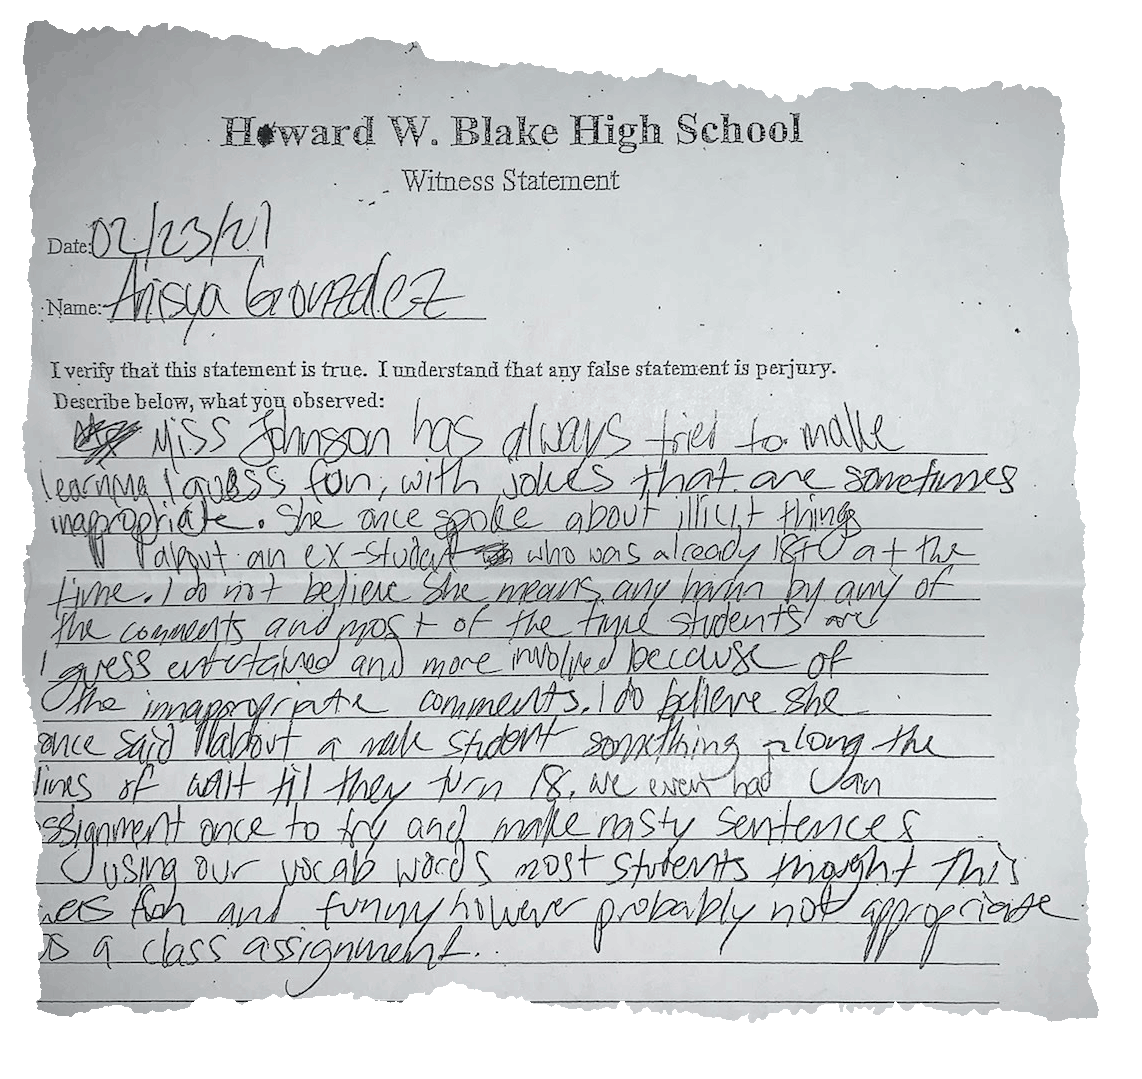 Howard W. Blake High School
Witness Statement
Date: 02/23/21
Name: Anisya Gonzdez
I verify that this statement is true. I understand that any false statement is perjury.
Describe below, what you observed:
Miss Johnson has always tried to make
learning I guess fun, with jokes that are sometimes
inappropriate. She once spoke about illicit things
about an ex-student who was already 18 at the
time. I do not believe she means any harm by any of
the comments and most of the time students are
I guess entertained and more involved because of
the innappropriate comments. I do believe she
once said about a male student something along the
lines of wait til they turn 18. we even had an
ssignment once to try and make nasty sentences
using our vocab words most students thought this
was fun and funny however probably not appropriate
as a class assignment.